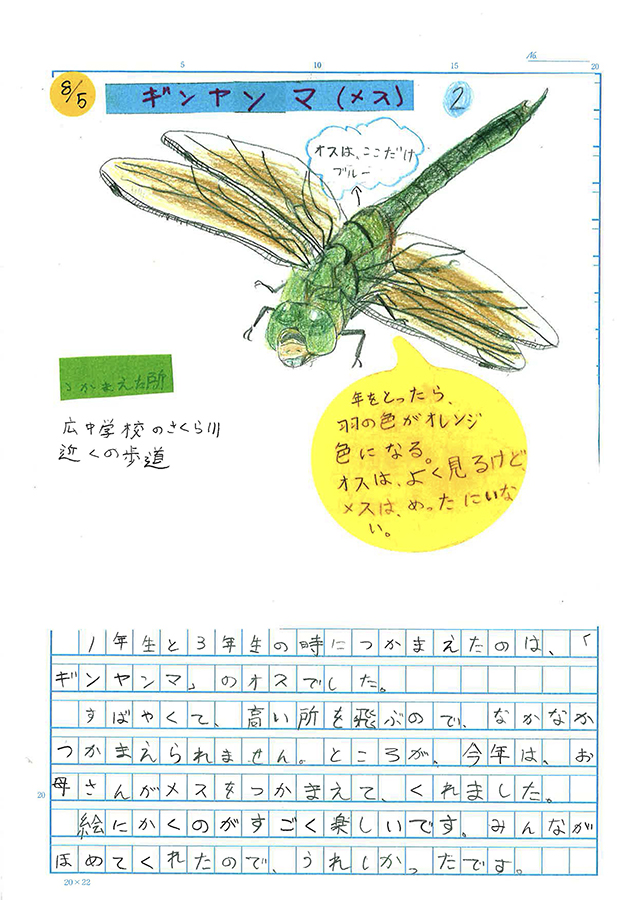 5 10 15 20
No.
8/5
ギンヤンマ(メス)
2
オスは、ここだけ
ブルー
つかまえた所
広中学校のさくら川
近くの歩道
年をとったら、
羽の色がオレンジ
色になる。
オスは、よく見るけど、
メスは、めったにいな
い。
1年生と3年生の時につかまえたのは、「
ギンヤンマ」のオスでした。
すばやくて、高い所を飛ぶので、なかなか
つかまえられません。ところが、今年は、お
母さんがメスをつかまえて、くれました。
絵にかくのがすごく楽しいです。みんなが
ほめてくれたので、うれしかったです。
20
20×22